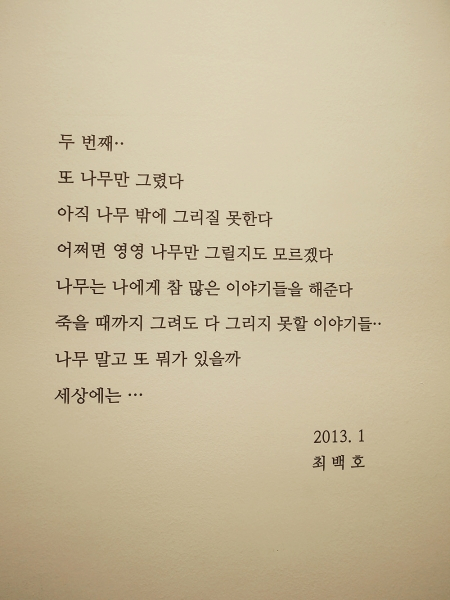 두 번째··
또 나무만 그렸다
아직 나무 밖에 그리질 못한다
어쩌면 영영 나무만 그릴지도 모르겠다
나무는 나에게 참 많은 이야기들을 해준다
죽을 때까지 그려도 다 그리지 못할 이야기들··
나무 말고 또 뭐가 있을까
세상에는 …
2013. 1
최 백 호